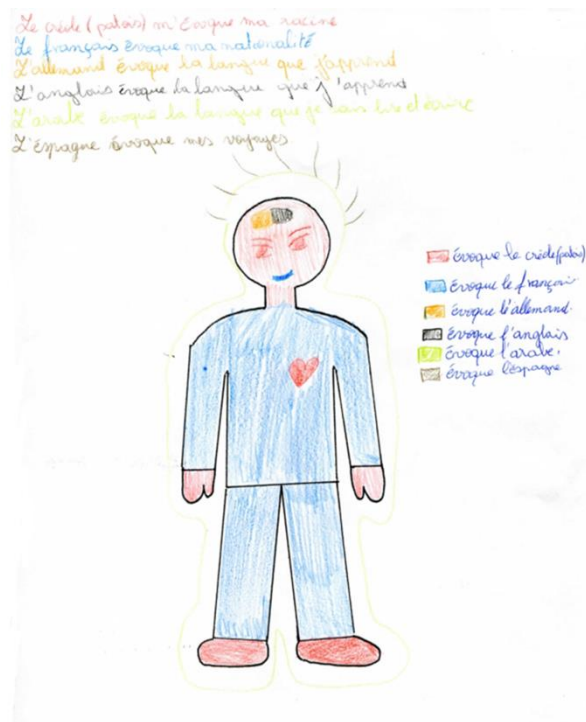 Le créole (patois) m'évoque ma racine
Le français évoque ma nationalité
L'allemand évoque la langue que j'apprend
L'anglais évoque la langue que j'apprend
L'arabe évoque la langue que je sais lire et écrire
L'espagne évoque mes voyages
évoque le créole (patois)
évoque le français
évoque l'allemand.
évoque l'anglais
évoque l'arabe.
évoque l'espagne